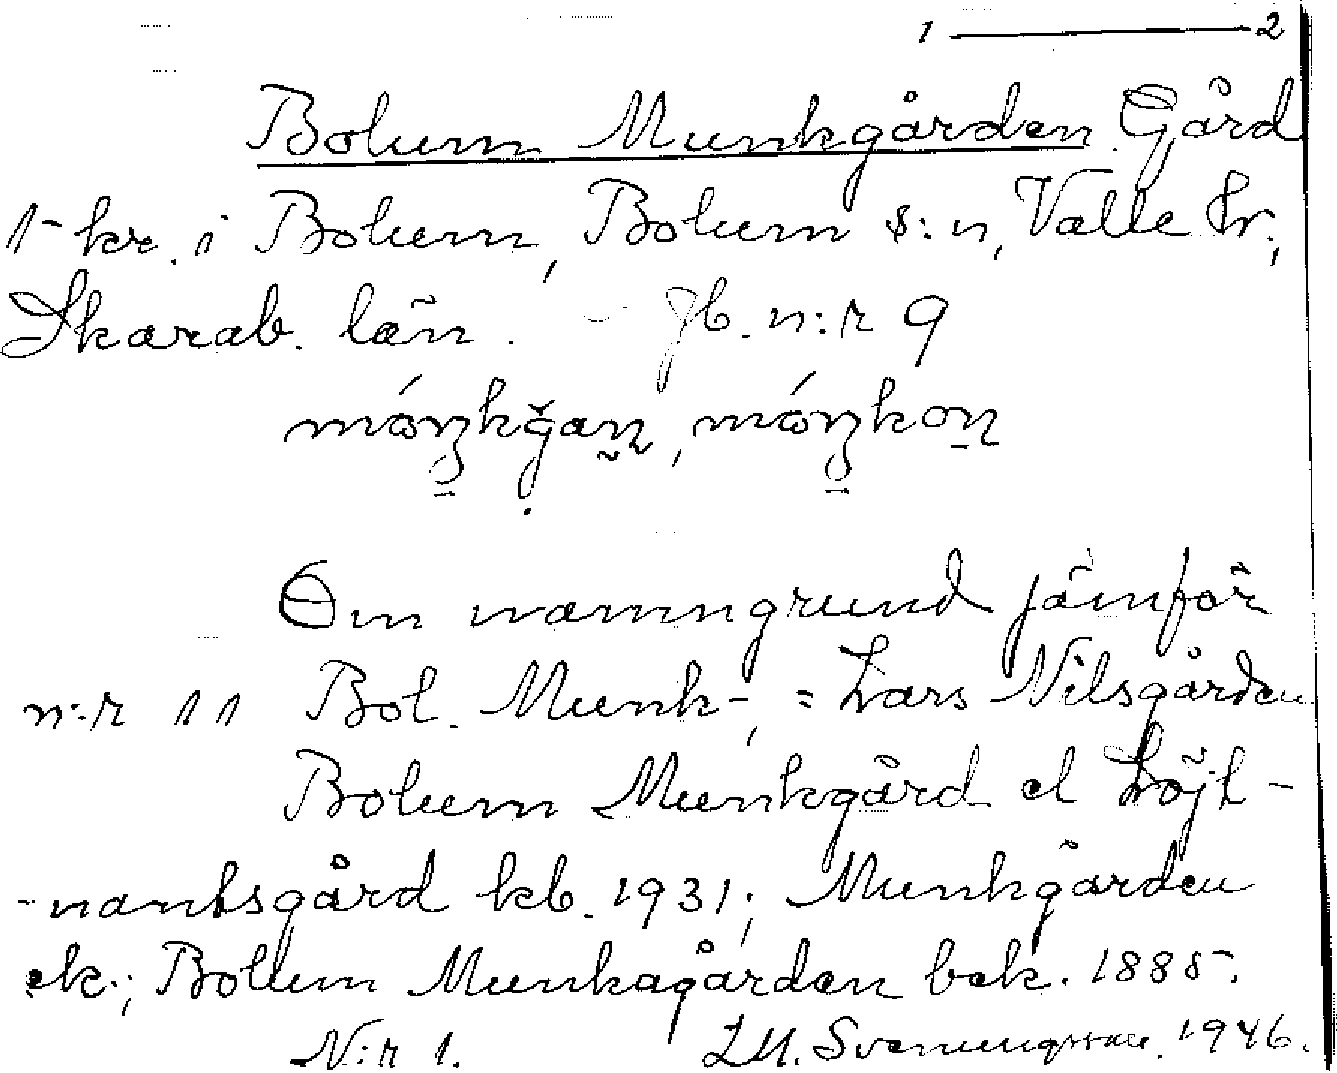 1 ——— 2
Bolum Munkgården. Gård
1 kr. i Bolum, Bolum s:n, Valle hr.,
Skarab. län. - Jb. n:r 9
Om namngrund jämför
n:r 11 Bol. Munk-, = Lars Nilsgården
Bolum Munkgård el Löjt-
-nantsgård kb. 1931; Munkgården
ek.; Bolum Munkagården bek. 1885.
N:r 1. 1946.